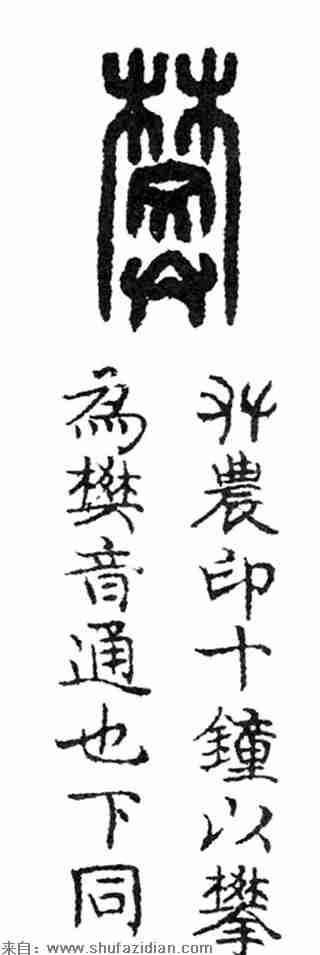 農印十鐘以攀
為樊音通也下同
来自：www.shufazidian.com